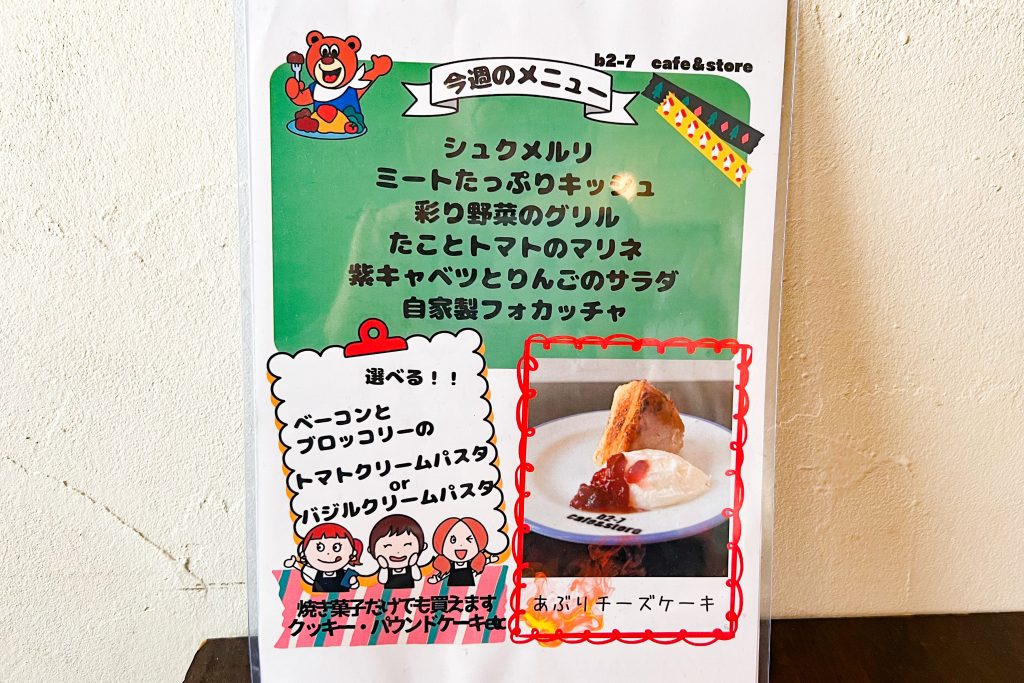 b2-7 cafe&store
今週のメニュー
シュクメルリ
ミートたっぷりキッシュ
彩り野菜のグリル
たことトマトのマリネ
紫キャベツとりんごのサラダ
自家製フォカッチャ
選べる！！
ベーコンと
ブロッコリーの
トマトクリームパスタ
or
バジルクリームパスタ
焼き菓子だけでも買えます
クッキー・パウンドケーキetc
b2-7
cafe&store
あぶりチーズケーキ